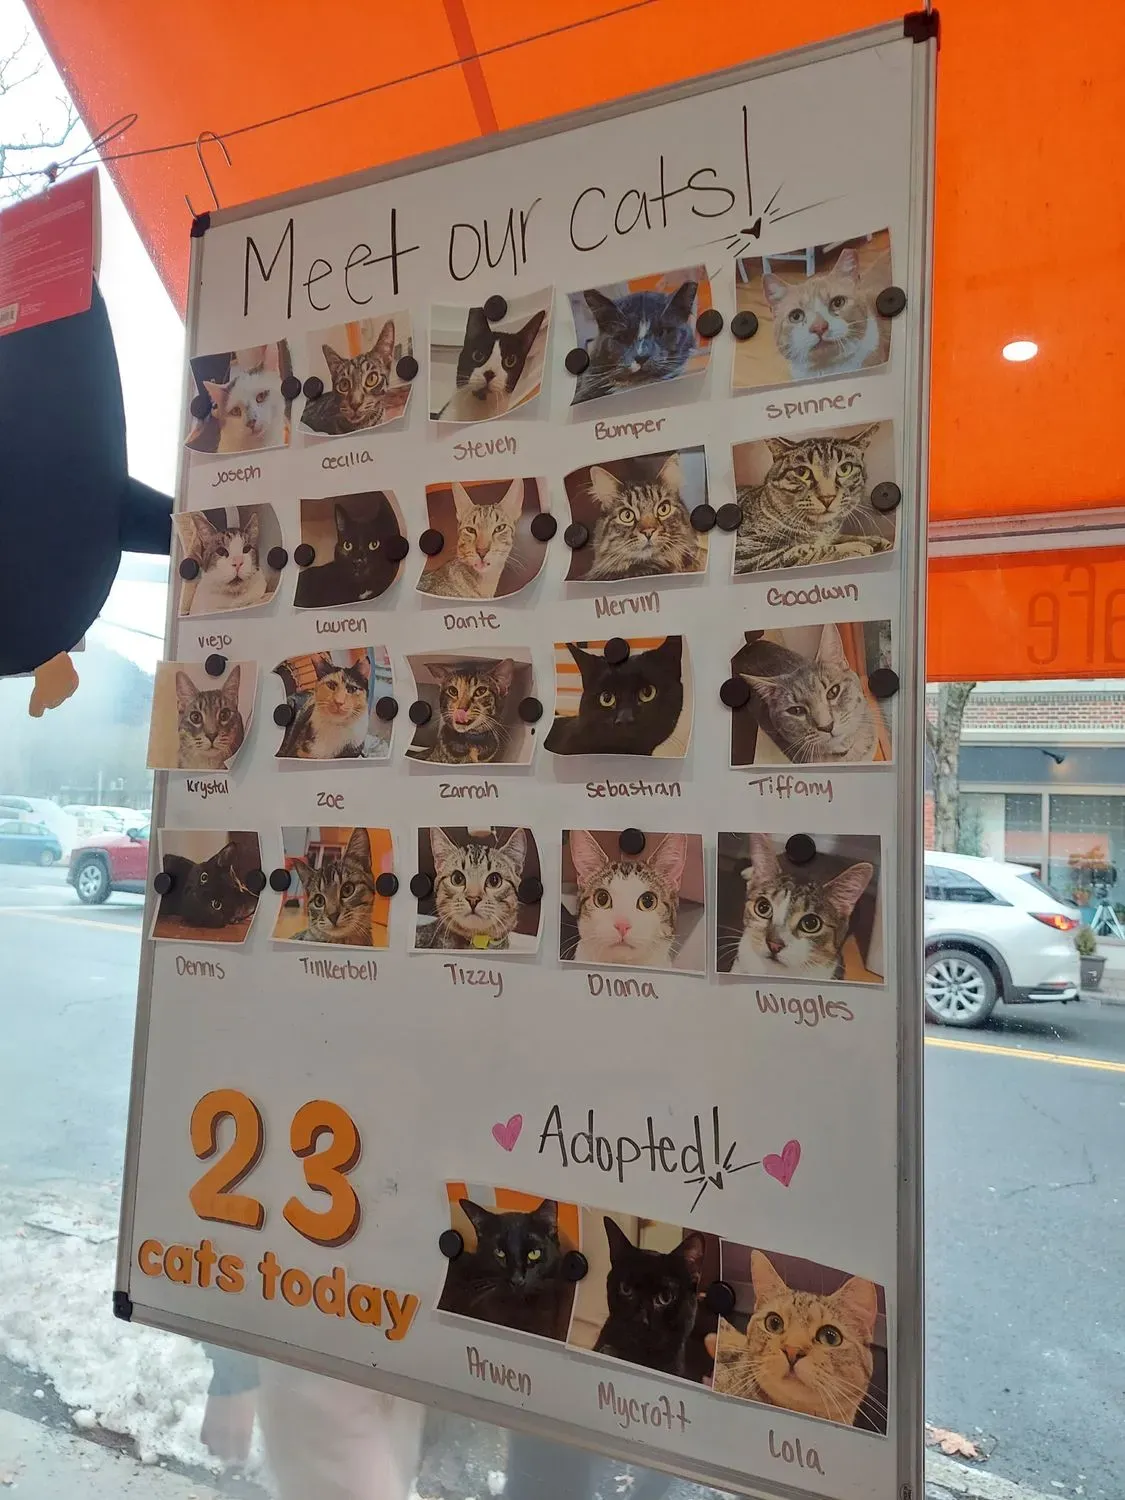 Meet our cats!
Joseph
Cecilia
Steven
Bumper
Spinner
Viejo
Lauren
Dante
Mervin
Goodwin
Krystal
Zoe
Zarrah
Sebastian
Tiffany
Dennis
Tinkerbell
Tizzy
Diana
Wiggles
23
cats today
Adopted!
Arwen
Mycroft
Lola
afe